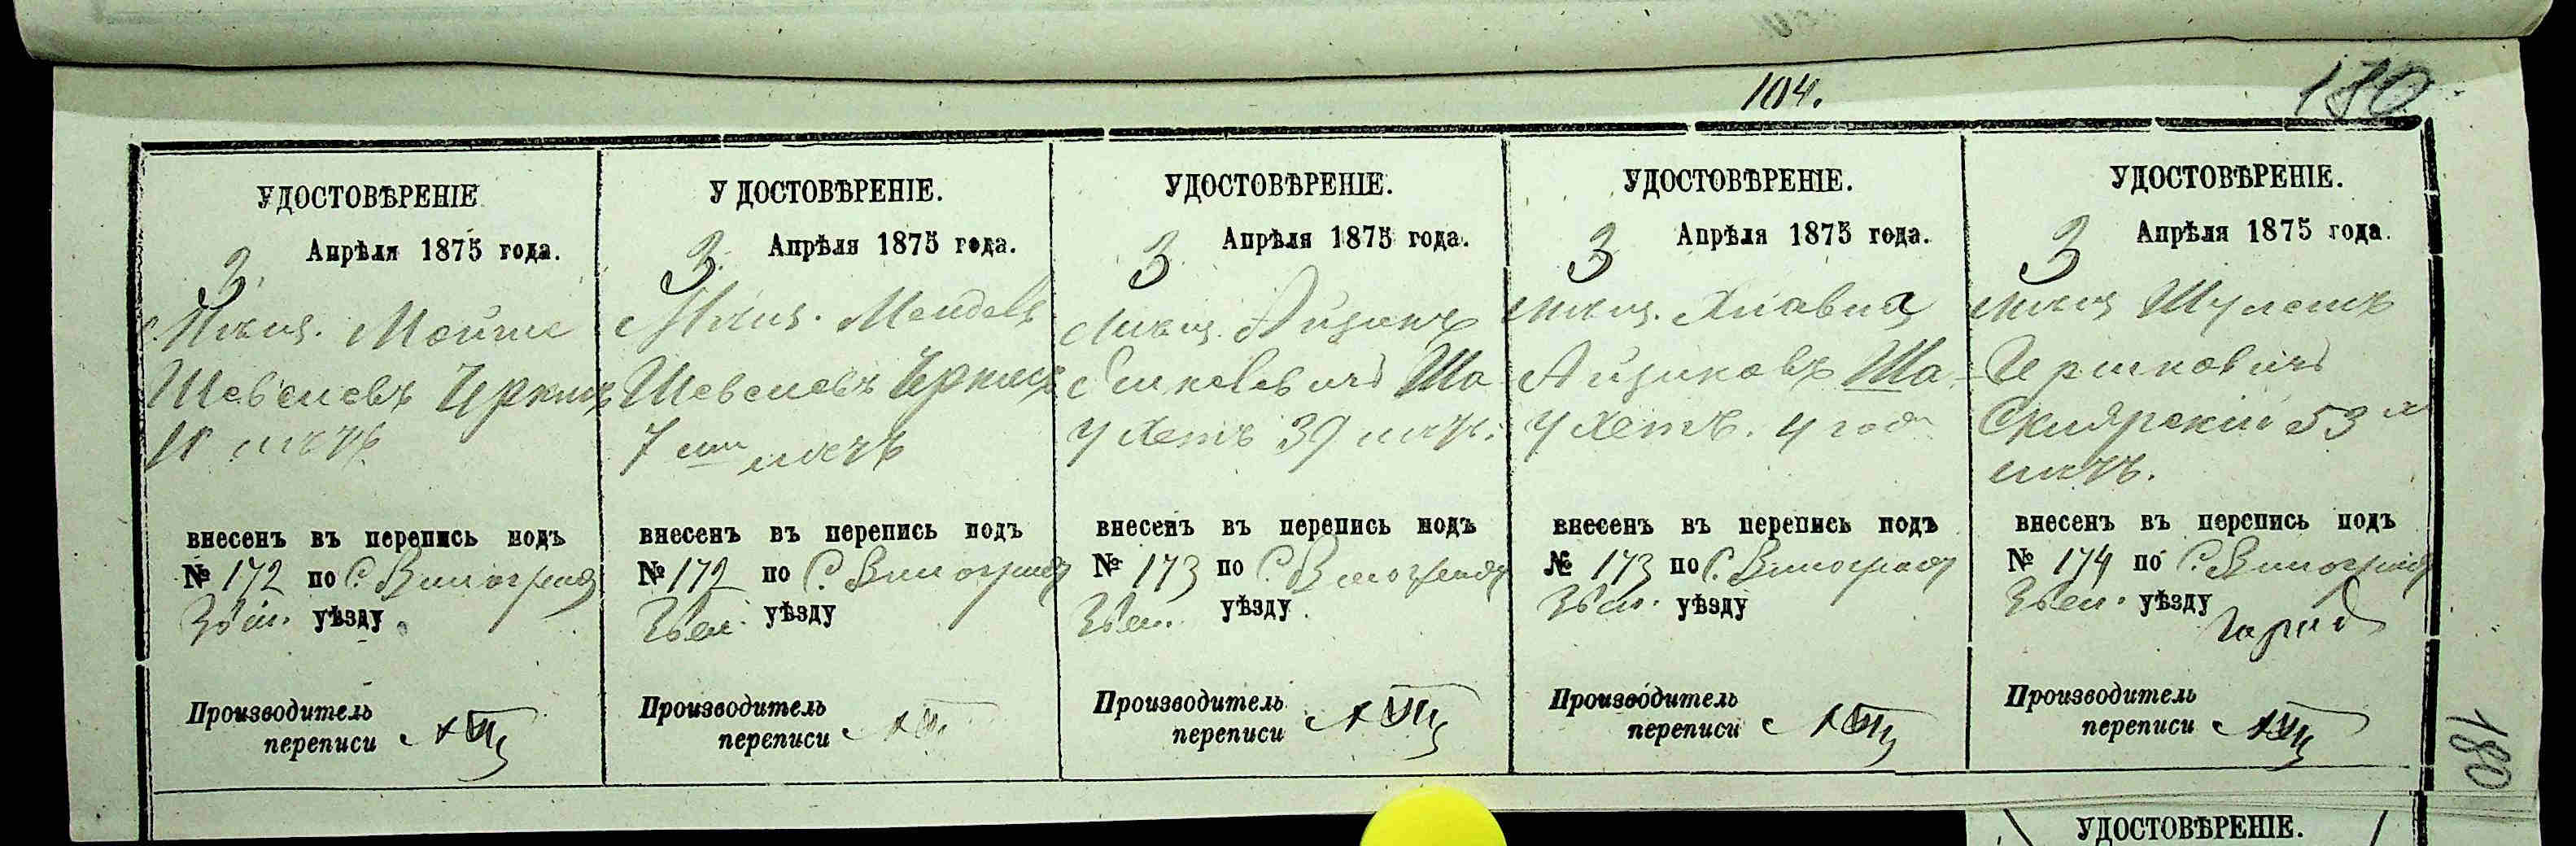 104.
180
УДОСТОВѢРЕНІЕ
3. Апрѣля 1875 года.
Мѣщ. Мойше
Шевелевъ Черкис
лѣтъ
внесенъ въ перепись подъ
№ 172 по С. Виноград
Звен. уѣзду
Производитель
переписи
УДОСТОВѢРЕНІЕ.
3. Апрѣля 1875 года.
Мѣщ. Мендель
Шевелевъ Черкис
7 ми лѣтъ
внесенъ въ перепись подъ
№ 172 по С. Виноград
Звен. уѣзду
Производитель
переписи
УДОСТОВѢРЕНІЕ.
3 Апрѣля 1875 года.
Мѣщ. Айзикъ
Ша
39 лѣтъ.
внесенъ въ перепись подъ
№ 173 по С. Виноград
Звен. уѣзду
Производитель
переписи
УДОСТОВѢРЕНІЕ.
3 Апрѣля 1875 года.
Мѣщ. Хпавна
Айзиковъ Ша
4 года
внесенъ въ перепись подъ
№ 173 по С. Виноград
Звен. уѣзду
Производитель
переписи
УДОСТОВѢРЕНІЕ.
3 Апрѣля 1875 года.
Мѣщ Шулемъ
Гершковичъ
Склярскій 53 х
лѣтъ.
внесенъ въ перепись подъ
№ 174 по С. Виноград
Звен. уѣзду
Производитель
переписи
180
УДОСТОВѢРЕНІЕ.